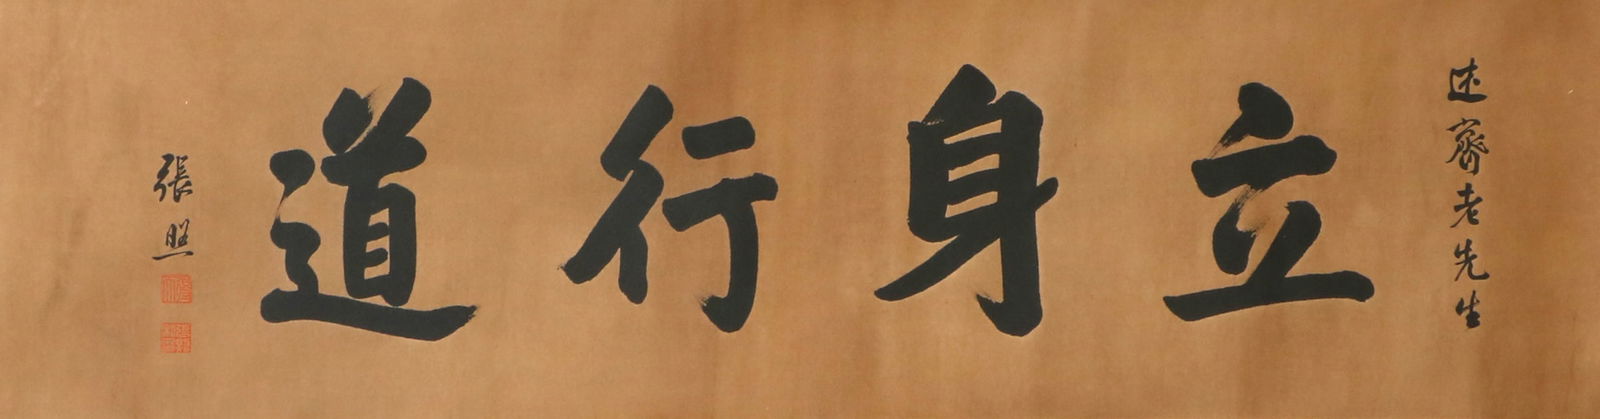 述齋老先生
立身行道
張照